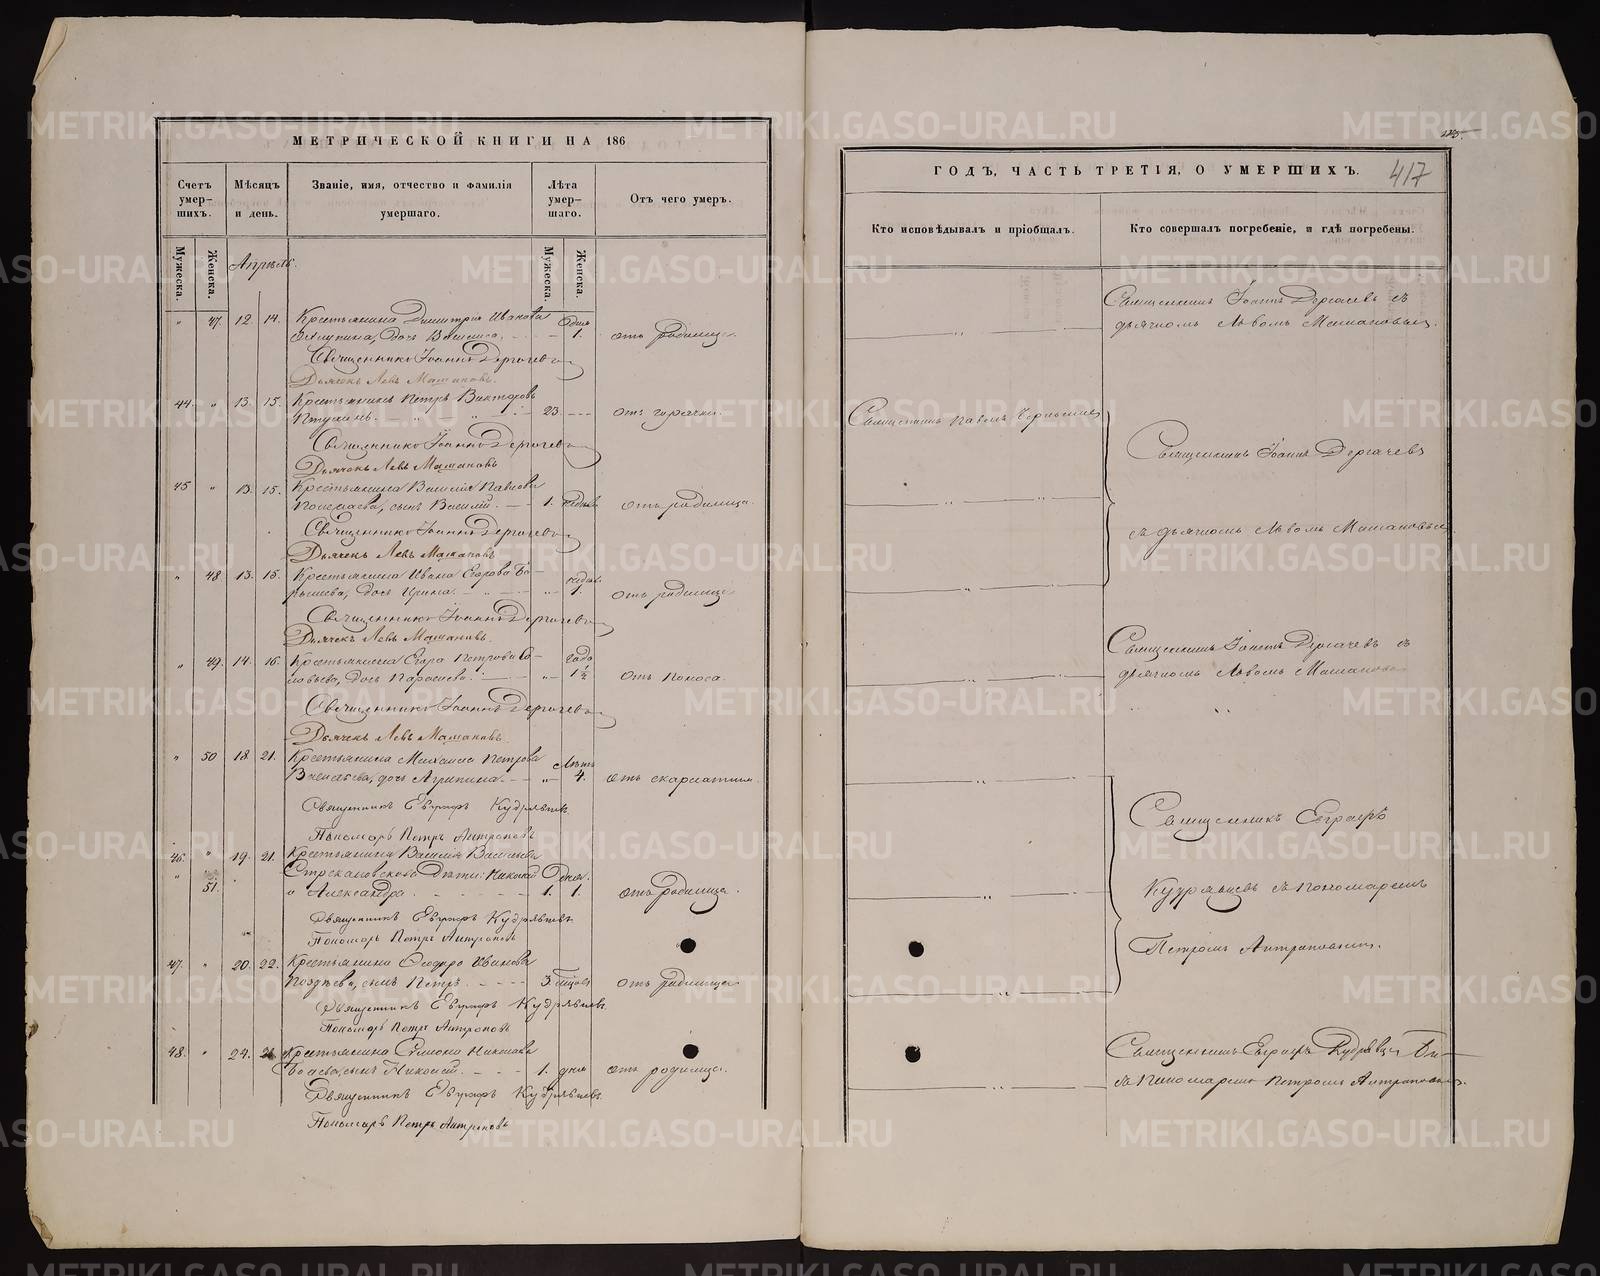 МЕТРИЧЕСКОЙ КНИГИ НА 186
Счетъ умер-шихъ.
Мѣсяцъ и день.
Званіе, имя, отчество и фамилія умершаго.
Лѣта умер-шаго.
Отъ чего умеръ.
Мужеска.
Женска.
Мужеска.
Женска.
Апрѣль.
" 47. 12 14. Крестьянина Димитрія Иванова
дочь 1. отъ родимца
Священникъ Іоаннъ Дергачевъ
Дьячекъ Левъ Машановъ.
44. " 13. 15. Крестьянинъ Петръ Викторовъ
23. отъ горячки
Священникъ Іоаннъ Дергачевъ
Дьячекъ Левъ Машановъ
45 " 13. 15. Крестьянина Василія Павлова
сынъ Василій. 1. отъ родимца.
Священникъ Іоаннъ Дергачевъ
Дьячекъ Левъ Машановъ
" 48 13. 15. Крестьянина Ивана Егорова Ба-
рышева, дочь Ирина. 1. отъ родимца
Священникъ Іоаннъ Дергачевъ
Дьячекъ Левъ Машановъ.
" 49. 14. 16. Крестьянина Егора Петрова Со-
ловьева, дочь года 1½ отъ поноса.
Священникъ Іоаннъ Дергачевъ
Дьячекъ Левъ Машановъ
" 50 18. 21. Крестьянина Михаила Петрова
дочь Агрипина. лѣтъ 4. отъ скарлатины.
Священникъ Евграфъ Кудрявцевъ
Пономарь Петръ Антроповъ
46. " 19. 21. Крестьянина Василія Васильева
дѣти: Николай
" 51. и Александра 1. 1. отъ родимца.
Священникъ Евграфъ Кудрявцевъ
Пономарь Петръ Антроповъ
47. " 20. 22. Крестьянина Ѳеодора Иванова
Поздѣева, сынъ Петръ 3. отъ родимца
Священникъ Евграфъ Кудрявцевъ.
Пономарь Петръ Антроповъ
48. " 24. Крестьянина Симона
сынъ 1. дня отъ родимца.
Священникъ Евграфъ Кудрявцевъ.
Пономарь Петръ Антроповъ
ГОДЪ, ЧАСТЬ ТРЕТІЯ, О УМЕРШИХЪ.
417
Кто исповѣдывалъ и пріобщалъ.
Кто совершалъ погребеніе, и гдѣ погребены.
Священникъ Іоаннъ Дергачевъ съ
дьячкомъ Львомъ Машановымъ.
Священникъ Павелъ
Священникъ Іоаннъ Дергачевъ
съ дьячкомъ Львомъ Машановымъ
Священникъ Іоаннъ Дергачевъ съ
дьячкомъ Львомъ Машановымъ
Священникъ Евграфъ
Кудрявцевъ съ пономаремъ
Петромъ Антроповымъ.
Священникъ Евграфъ Кудрявцевъ
съ пономаремъ Петромъ Антроповымъ.
METRIKI.GASO-URAL.RU